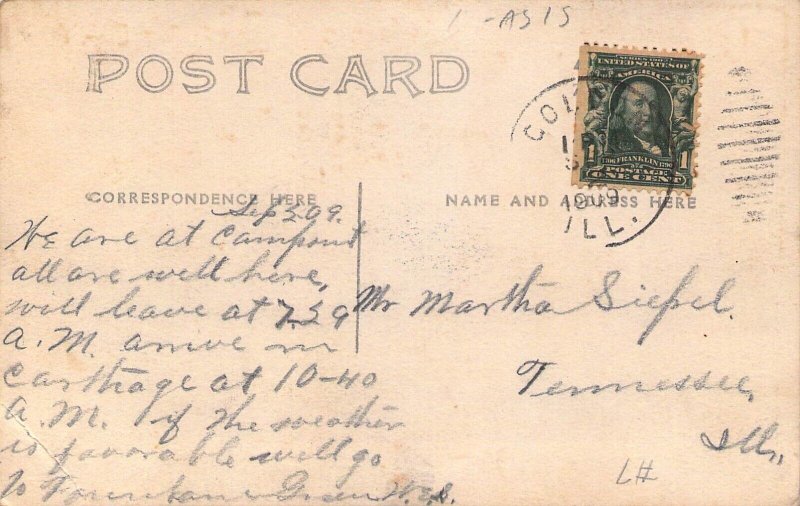 1 - AS IS
POST CARD
SERIES 1902
UNITED STATES OF
AMERICA
1 1
1706 FRANKLIN 1790
POSTAGE
ONE CENT
1909
ILL.
CORRESPONDENCE HERE
NAME AND ADDRESS HERE
Sep 3, 09.
We are at Camp Point
all are well here,
will leave at 7.59
A.M. arrive in
Carthage at 10-40
A.M. if the weather
is favorable will go
to Fountain Green
Mr Martha Siepel.
Tennessee,
Ills,
LH